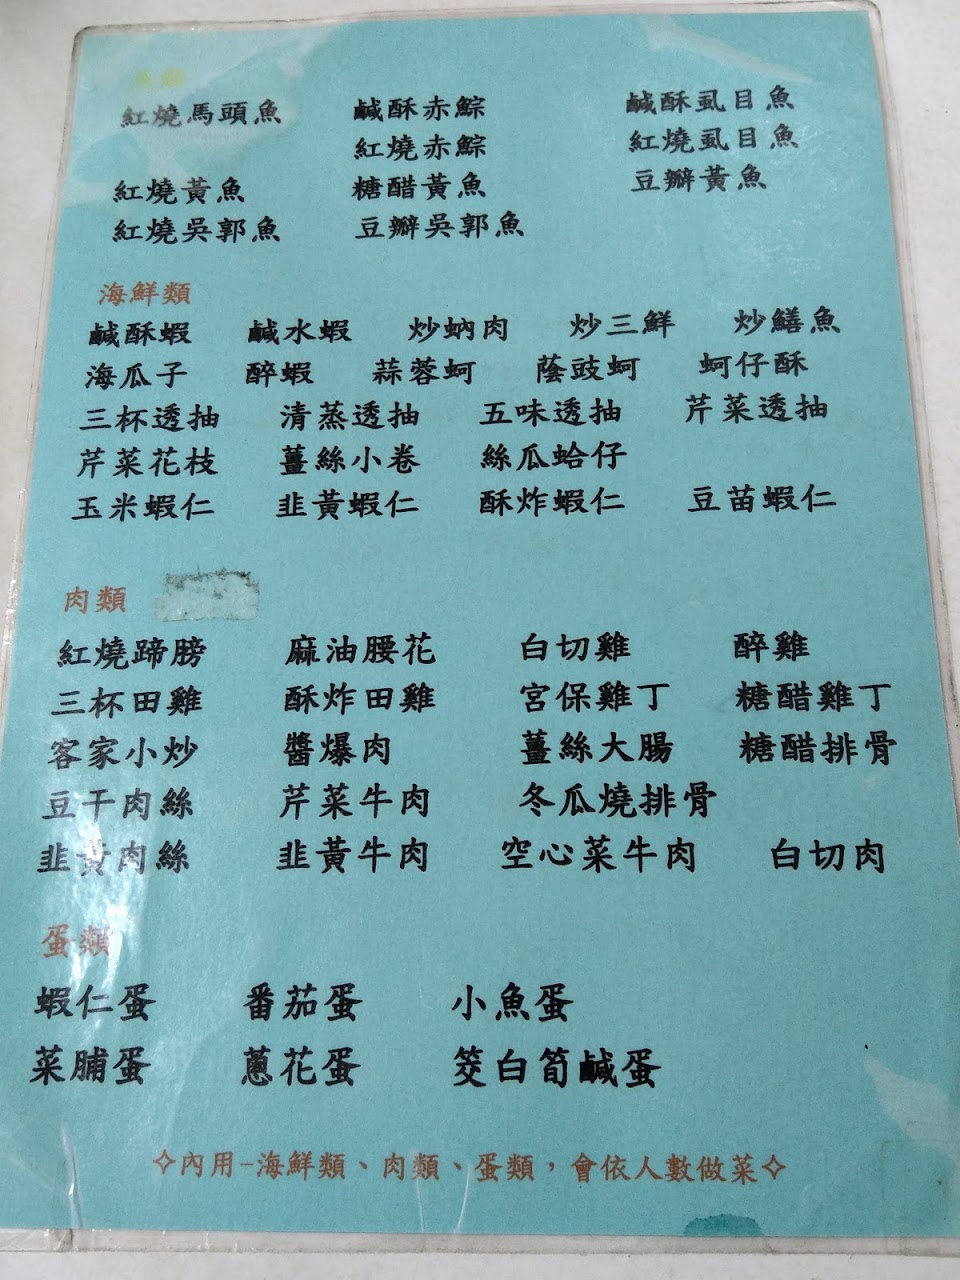 紅燒馬頭魚 鹹酥赤鯮 鹹酥虱目魚
紅燒赤鯮 紅燒虱目魚
紅燒黃魚 糖醋黃魚 豆瓣黃魚
紅燒吳郭魚 豆瓣吳郭魚
海鮮類
鹹酥蝦 鹹水蝦 炒蚋肉 炒三鮮 炒鱔魚
海瓜子 醉蝦 蒜蓉蚵 蔭豉蚵 蚵仔酥
三杯透抽 清蒸透抽 五味透抽 芹菜透抽
芹菜花枝 薑絲小卷 絲瓜蛤仔
玉米蝦仁 韭黃蝦仁 酥炸蝦仁 豆苗蝦仁
肉類
紅燒蹄膀 麻油腰花 白切雞 醉雞
三杯田雞 酥炸田雞 宮保雞丁 糖醋雞丁
客家小炒 醬爆肉 薑絲大腸 糖醋排骨
豆干肉絲 芹菜牛肉 冬瓜燒排骨
韭黃肉絲 韭黃牛肉 空心菜牛肉 白切肉
蛋類
蝦仁蛋 番茄蛋 小魚蛋
菜脯蛋 蔥花蛋 筊白筍鹹蛋
✧內用-海鮮類、肉類、蛋類，會依人數做菜✧